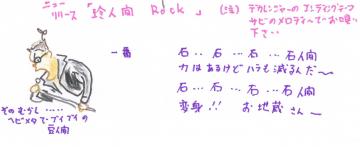 ニュー
リリース 「珍人間 Rock 」 (注) デカレンジャーのエンディングテーマ
サビのメロディーでお唄い
下さい‥
一番
石‥ 石‥ 石‥ 石人間
力はあるけど ハラも減るんだ〜
石‥ 石‥ 石‥ 石人間
変身!! お地蔵さん〜
その むかし‥‥‥
ヘビメタでブイブイの
石人間